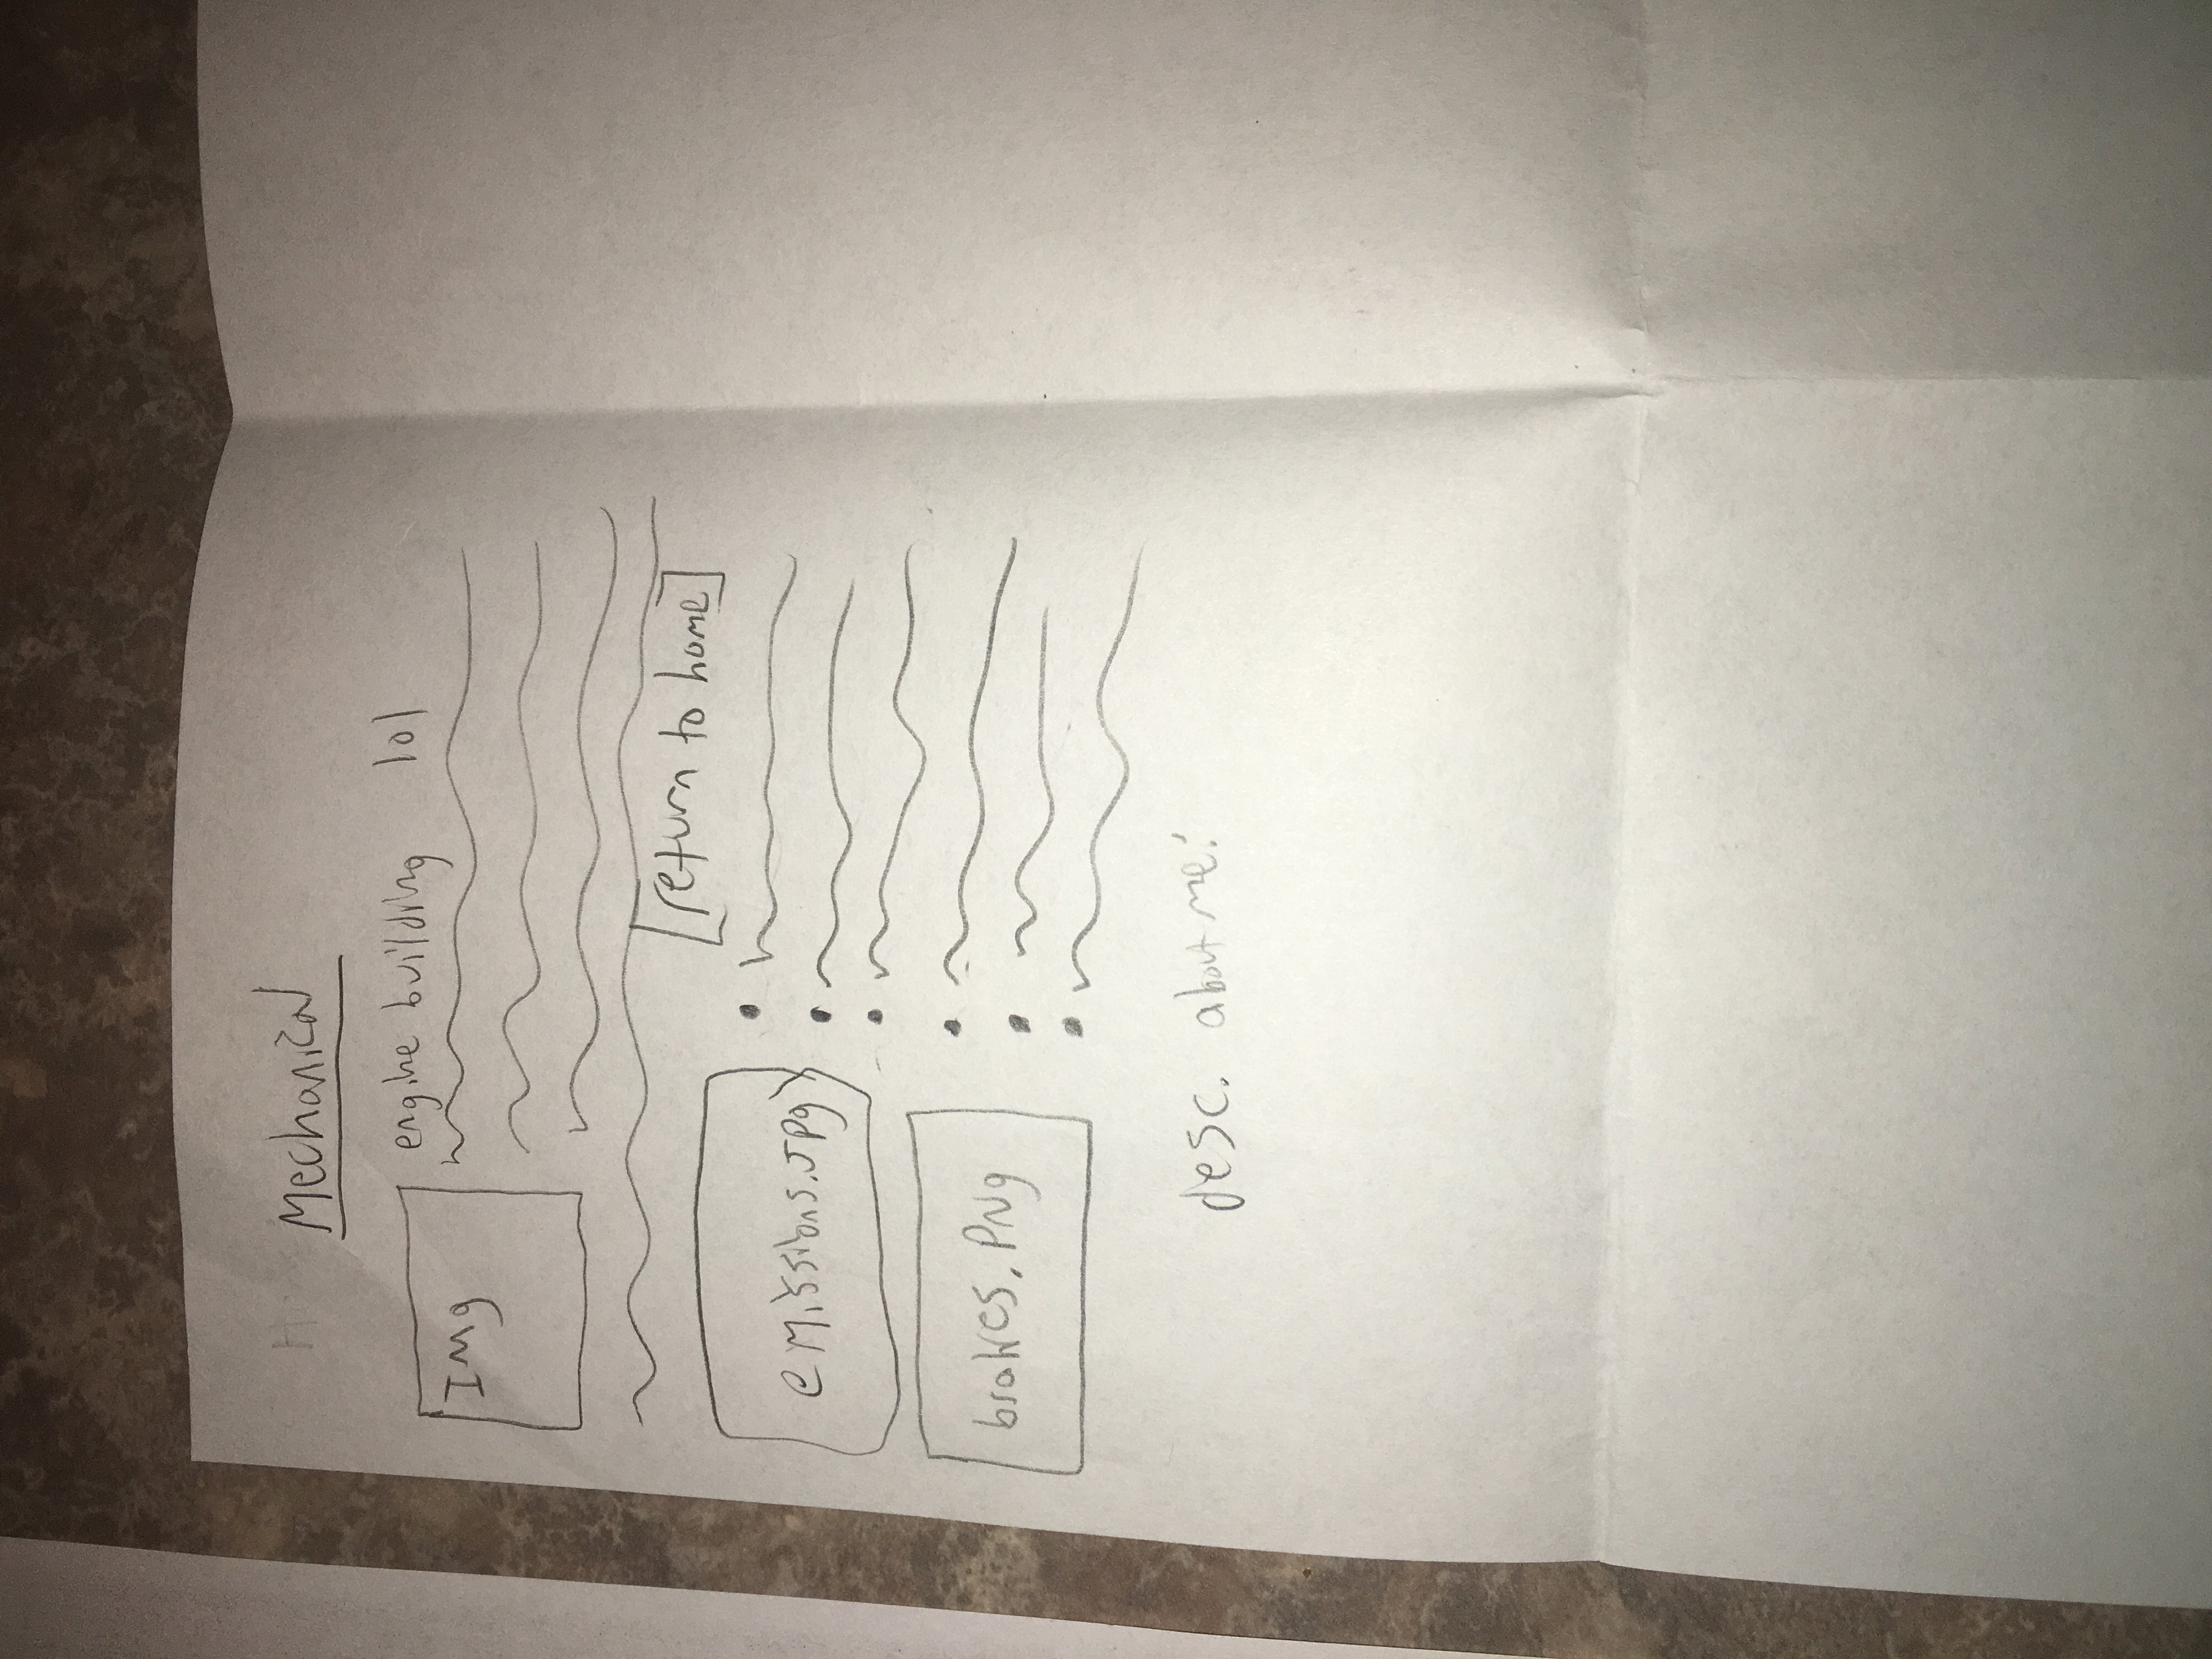 Mechanical
engine building 101
Img
[return to home]
emissions.jpg
brakes.PNg
desc. about me: